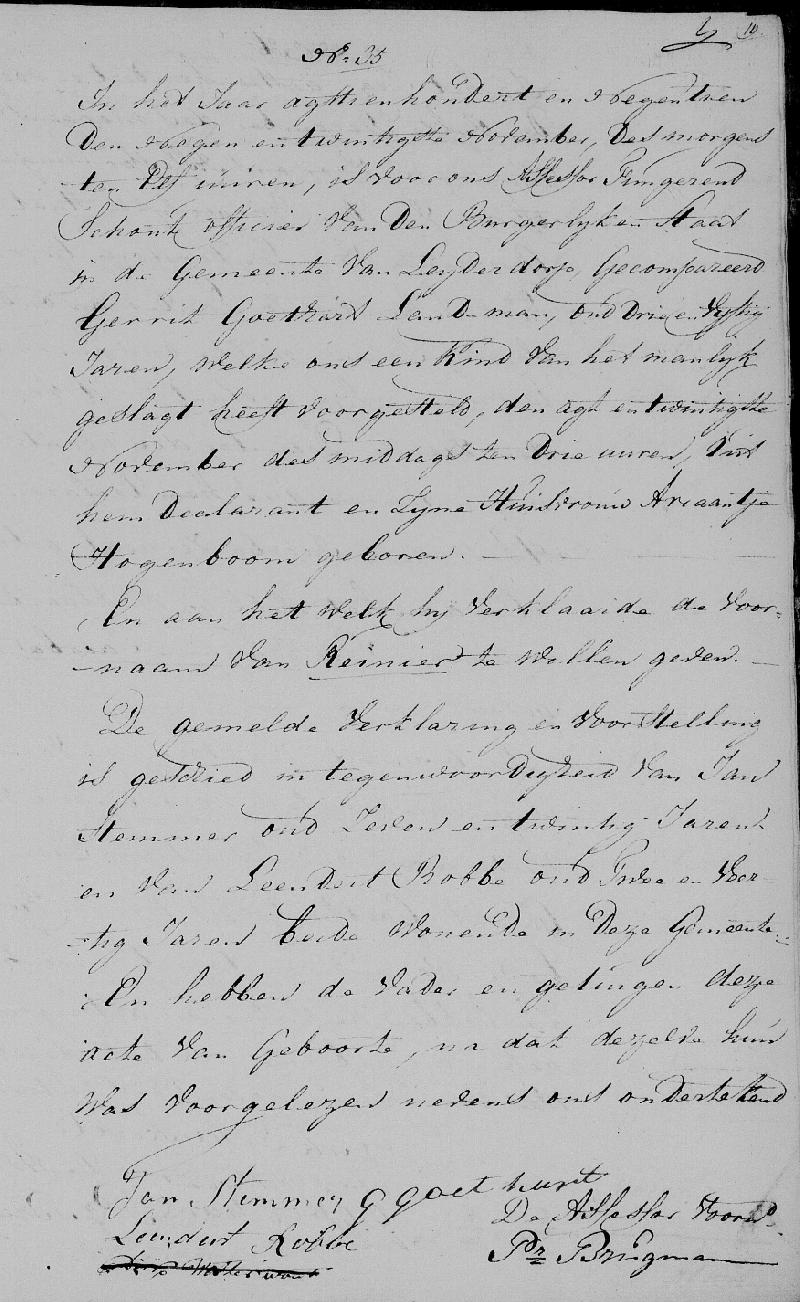 No. 35
In het Jaar agttienhondert en Negentien
Den Negen en twintigste November, des morgens
ten Elf uuren, is voor ons Assessor Fungerend
Schout officier van den Burgerlyken Staat
in de Gemeente van Leyderdorp, Gecompareerd
Gerrit Goethart Landman, oud Drie en Vyftig
Jaren, welke ons een Kind van het manlyk
geslagt heeft voorgesteld, den agt en twintigste
November des middags ten Drie uuren, uit
hem Declarant en Zyne Huisvrouw Ariaantje
Hogenboom geboren.
En aan het welk hy Verklaarde de Voor-
naam van Reinier te willen geven.
De gemelde Verklaring en Voorstelling
is geschied in tegenwoordigheid van Jan
Stemmer oud Zeven en twintig Jaren
en van Leendert Robbe oud Twee en Veer-
tig Jaren beide Wonende in Deze Gemeente.
En hebben de Vader en getuigen deze
acte van Geboorte, na dat dezelve hun
Was Voorgelezen nevens ons ondertekend
Jan Stemmer G Goethart
De Assessor Voorn.
Leendert Robbe
Pr Brugman